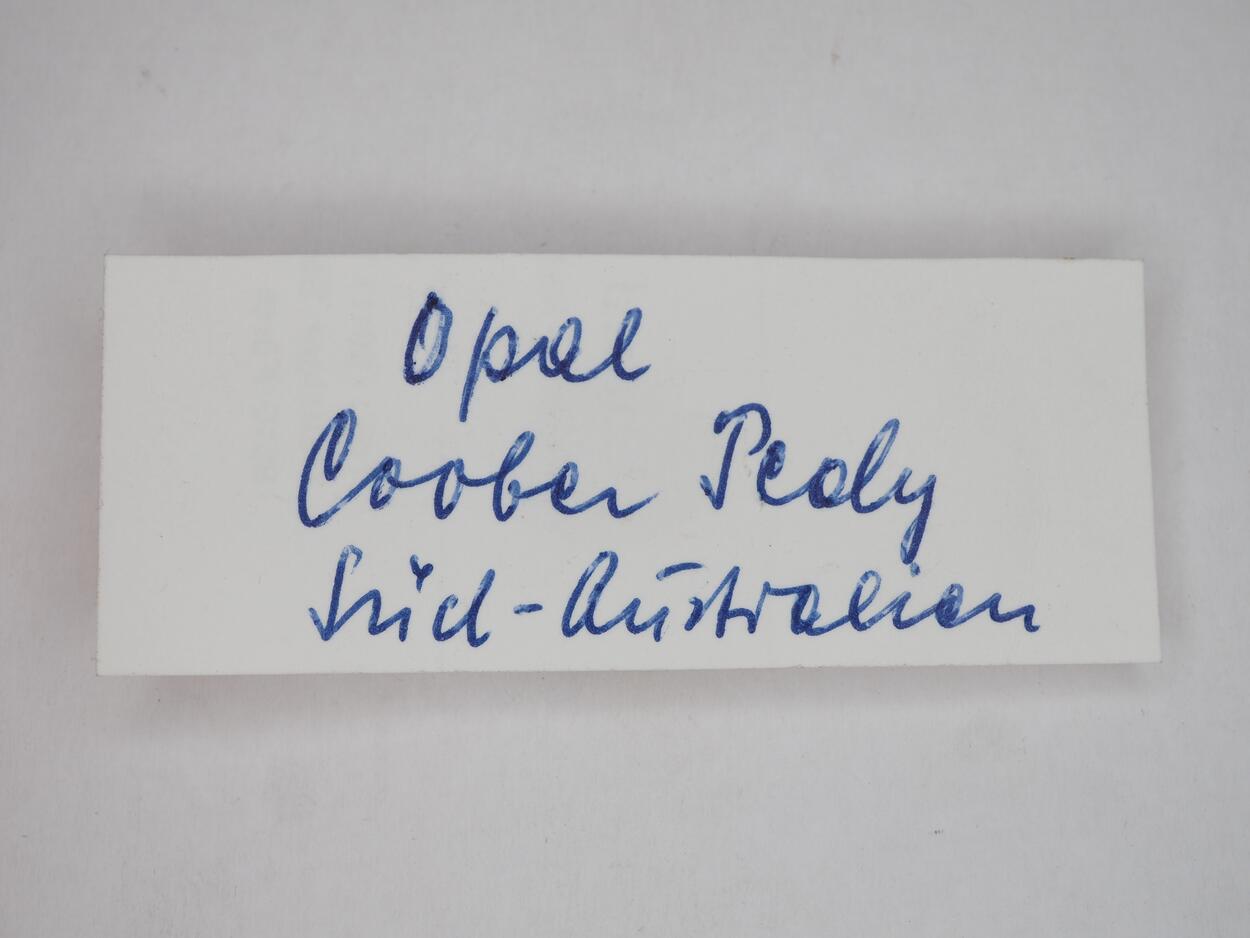 Opal
Coober Pedy
Süd-Australien